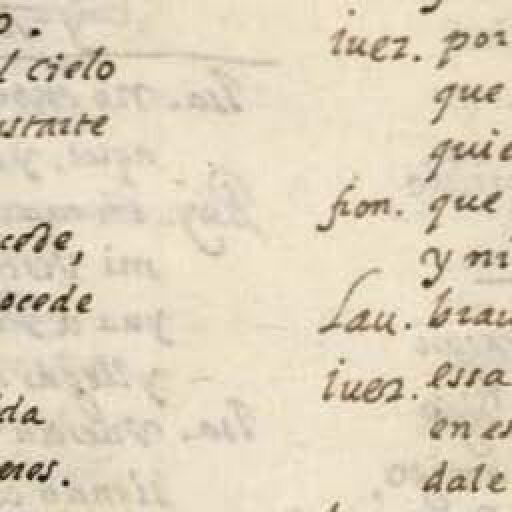 o.
l cielo
ustarte
cede,
ocede
da
eres.
iuez. por
que
quie
fion. que
y ni
Lau. brau
iuez. essa
en es
dale